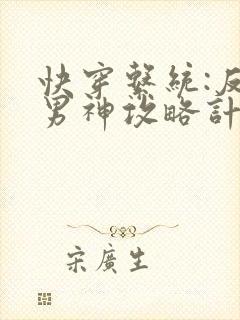 快穿繫統:反
男神攻略計
宋廣生